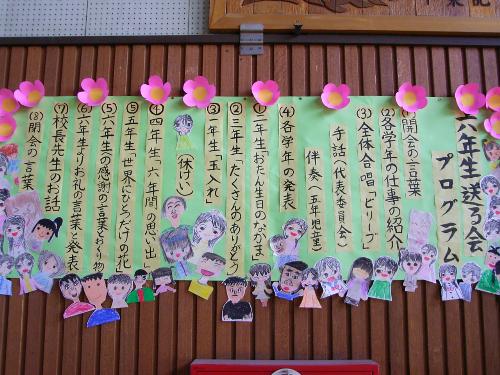 六年生送る会
プログラム
(1)開会の言葉
(2)各学年の仕事の紹介
(3)全体合唱「ビリーブ」
手話(代表委員会)
伴奏(五年
(4)各学年の発表
①二年生「おたん生日のなかま」
②三年生「たくさんのありがとう」
③一年生「玉入れ」
(休けい)
④四年生「六年間の思い出」
⑤五年生「世界にひとつだけの花」
(5)六年生への感謝の言葉とおくり物
(6)六年生よりお礼の言葉・発表
(7)校長先生のお話
(8)閉会の言葉